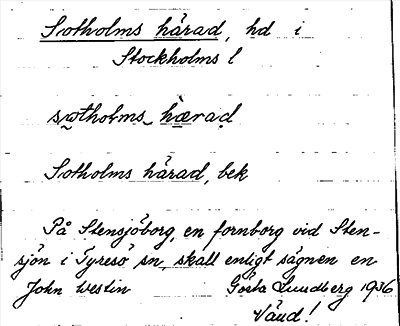 Sotholms härad, hd i
Stockholms l
sotholms härad
Sotholms härad, bek
På Stensjöborg, en fornborg vid Sten-
sjön i Tyresö sn, skall enligt sägnen en
John Westin Gösta Lundberg 1936
Vänd!